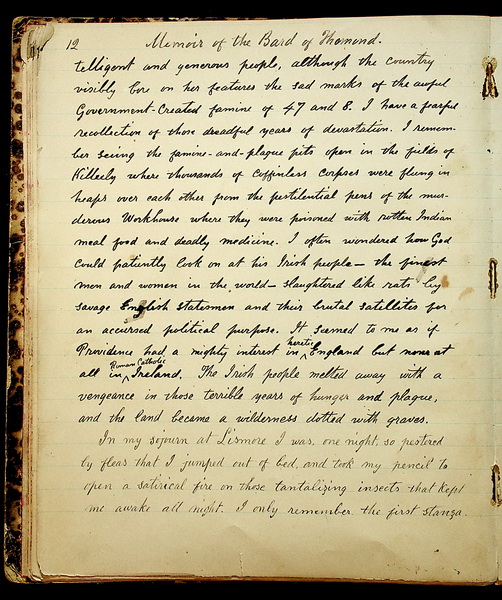 12 Memoir of the Bard of Thomond.
telligent and generous people, although the country
visibly bore on her features the sad marks of the awful
Government-Created famine of 47 and 8. I have a fearful
recollection of those dreadful years of devastation. I remem-
ber seeing the famine-and-plague pits open in the fields of
Killeely where thousands of Coffinless Corpses were flung in
heaps over each other from the pestilential pens of the mur-
derous Workhouse where they were poisoned with rotten Indian
meal food and deadly medicine. I often wondered how God
could patiently look on at his Irish people— the finest
men and women in the world— slaughtered like rats by
savage English statesmen and their brutal satellites for
an accursed political purpose. It seemed to me as if
Providence had a mighty interest in heretic England but none at
all in Roman Catholic Ireland. The Irish people melted away with a
vengeance in those terrible years of hunger and plague,
and the land became a wilderness dotted with graves.
In my sojourn at Lismore I was, one night, so pestered
by fleas that I jumped out of bed, and took my pencil to
open a satirical fire on those tantalizing insects that kept
me awake all night. I only remember the first stanza.